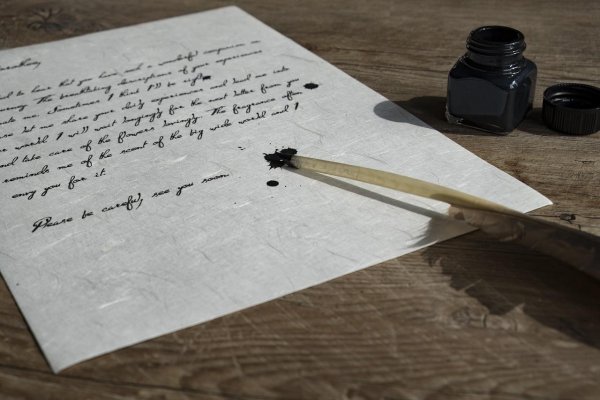 to hear that you have met a wonderful companion on
. The breathtaking descriptions of your experiences
me. Sometimes I think I'll be right
let me share your daily experiences and lead me into
world. I will wait longingly for the next letter from you
and take care of the flowers lovingly. The fragrance often
reminds me of the scent of the big wide world and I
envy you for it.
Please be careful, see you soon.